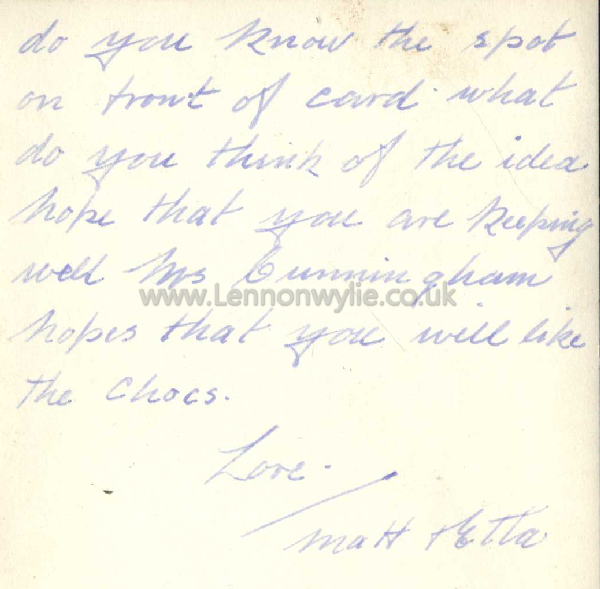 do you know the spot
on front of card. what
do you think of the idea
hope that you are keeping
well Mrs Cunningham
www.Lennonwylie.co.uk
hopes that you will like
the chocs.
Love.
Matt & Etta